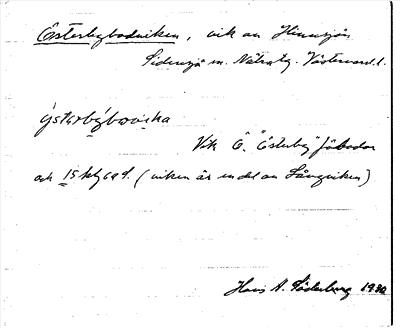 Österbybodviken, vik av Hinnsjön
Sidensjö sn. Nätra tg. Västernorrl. l.
ýstərbýbowika
Vik Ö. "Österby" fäbodar
och 15 kly (viken är en del av Långviken)
Hans A. Söderberg 1930